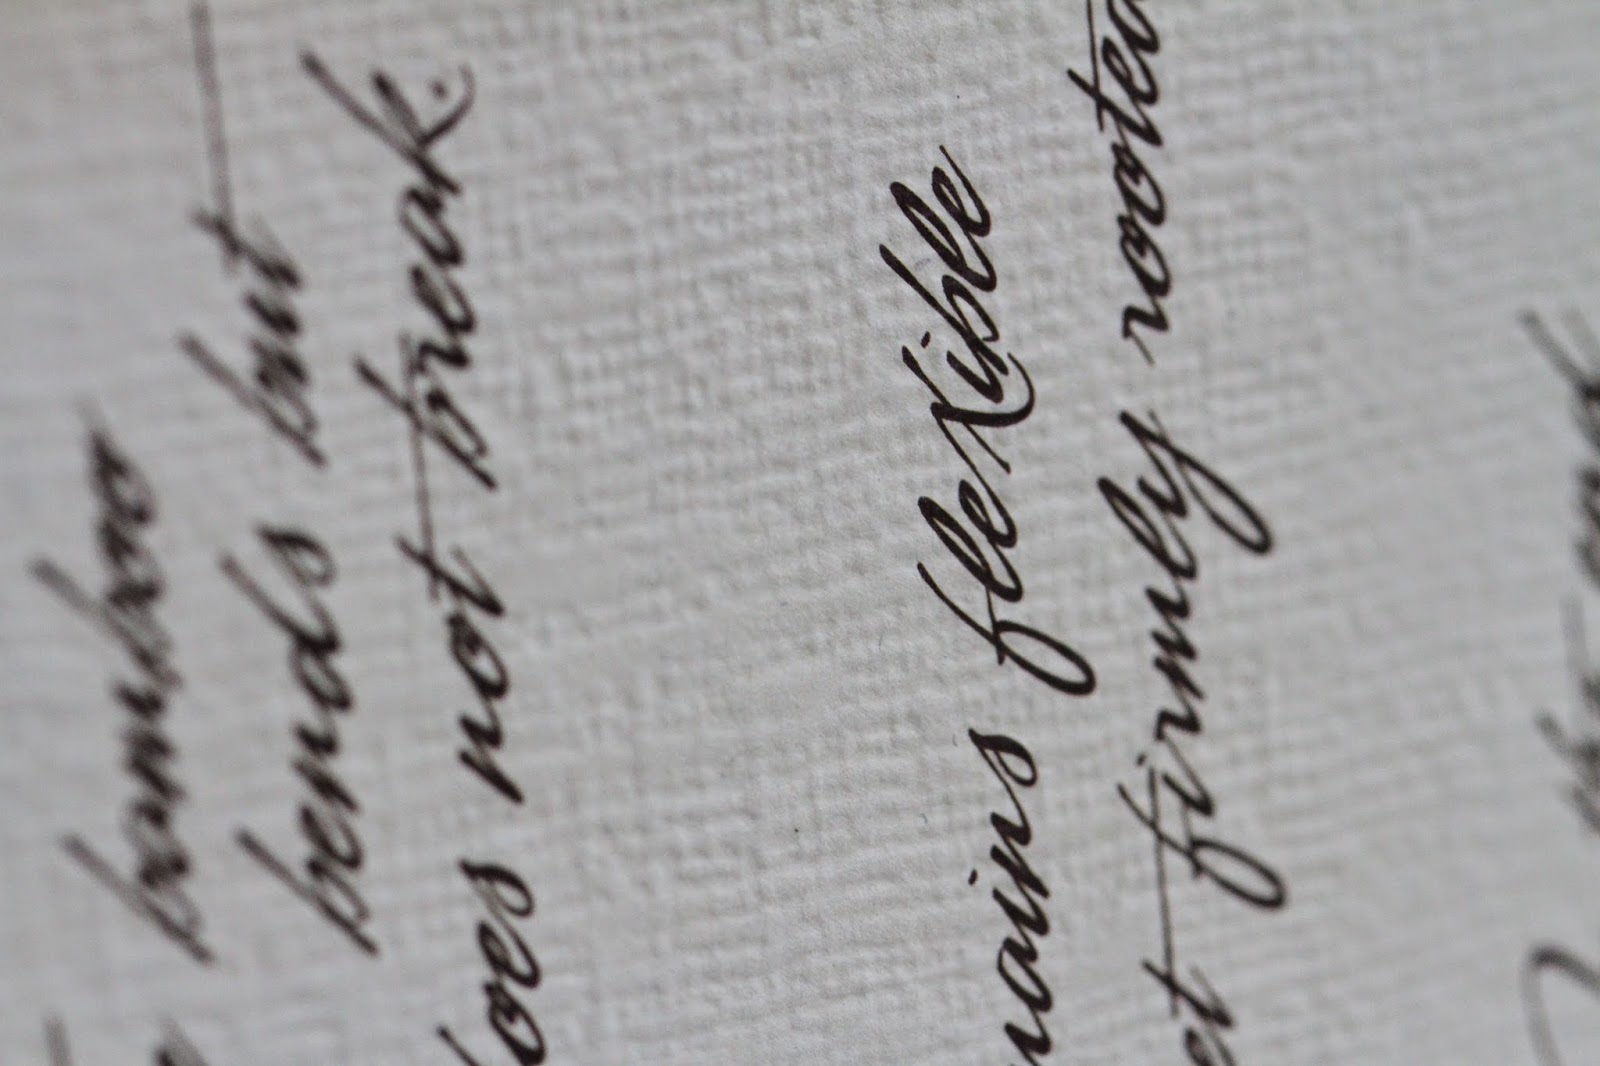 bamboo
bends but
does not break.
mains flexible
et firmly rooted